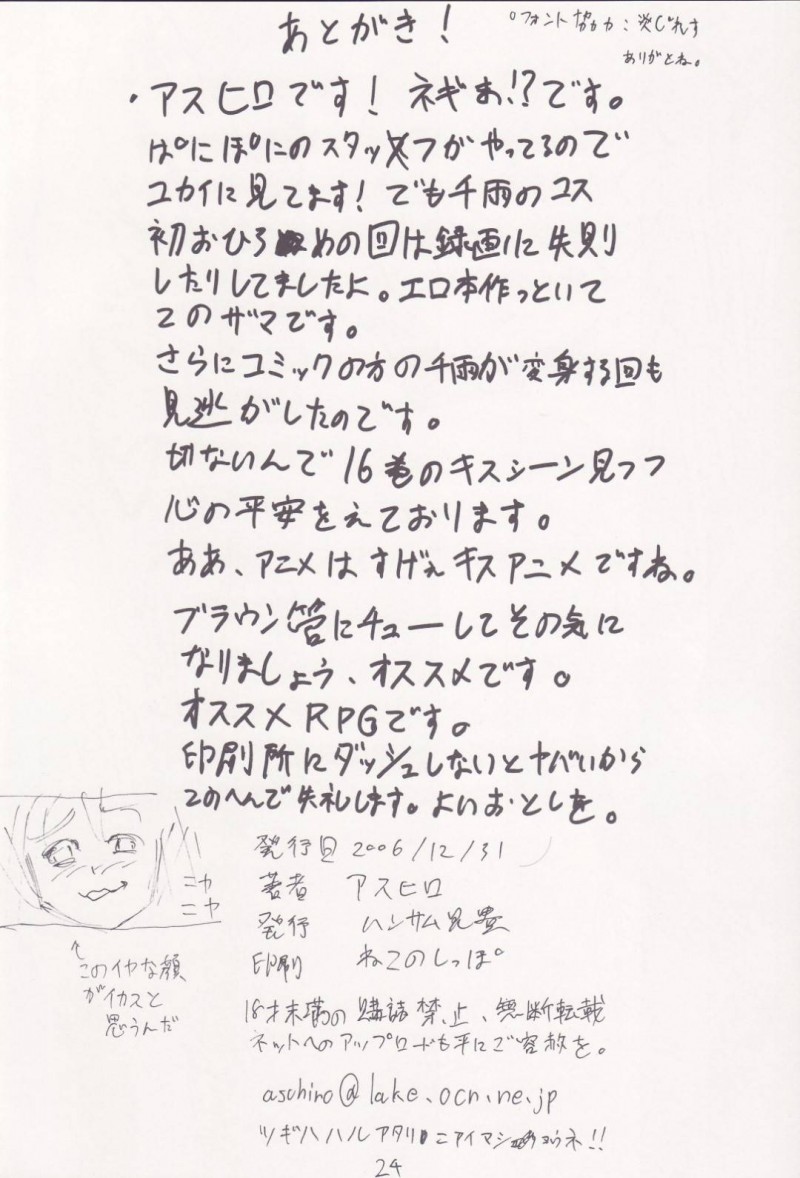 あとがき!
°フォント協力:炎じれす
ありがとね。
・アスヒロです! ネギま!?です。
ぱにぽにのスタッフがやってるので
ユカイに見てます! でも千雨のコス
初おひろめの回は録画に失則
したりしてましたよ。エロ本作っといて
このザマです。
さらにコミックの方の千雨が変身する回も
見逃がしたのです。
切ないんで16巻のキスシーン見つつ
心の平安をえております。
ああ、アニメはすげぇキスアニメですね。
ブラウン管にチューしてその気に
なりましょう、オススメです。
オススメRPGです。
印刷所にダッシュしないとヤバいから
このへんで失礼します。よいおとしを。
ニヤ
ニヤ
↑
このイヤな顔
がイカスと
思うんだ
発行日 2006/12/31
著者 アスヒロ
発行 ハンサム兄貴
印刷 ねこのしっぽ
18才未満の購読禁止、無断転載
ネットへのアップロードも平にご容赦を。
aschiro@lake.ocn.ne.jp
ツギハハルアタリニアイマショウネ!!
24